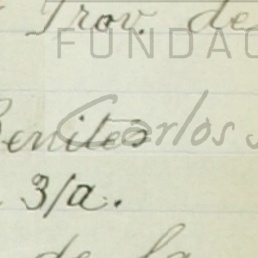 Prov. de
FUNDAC
Benites
Carlos S
3/a.
de la